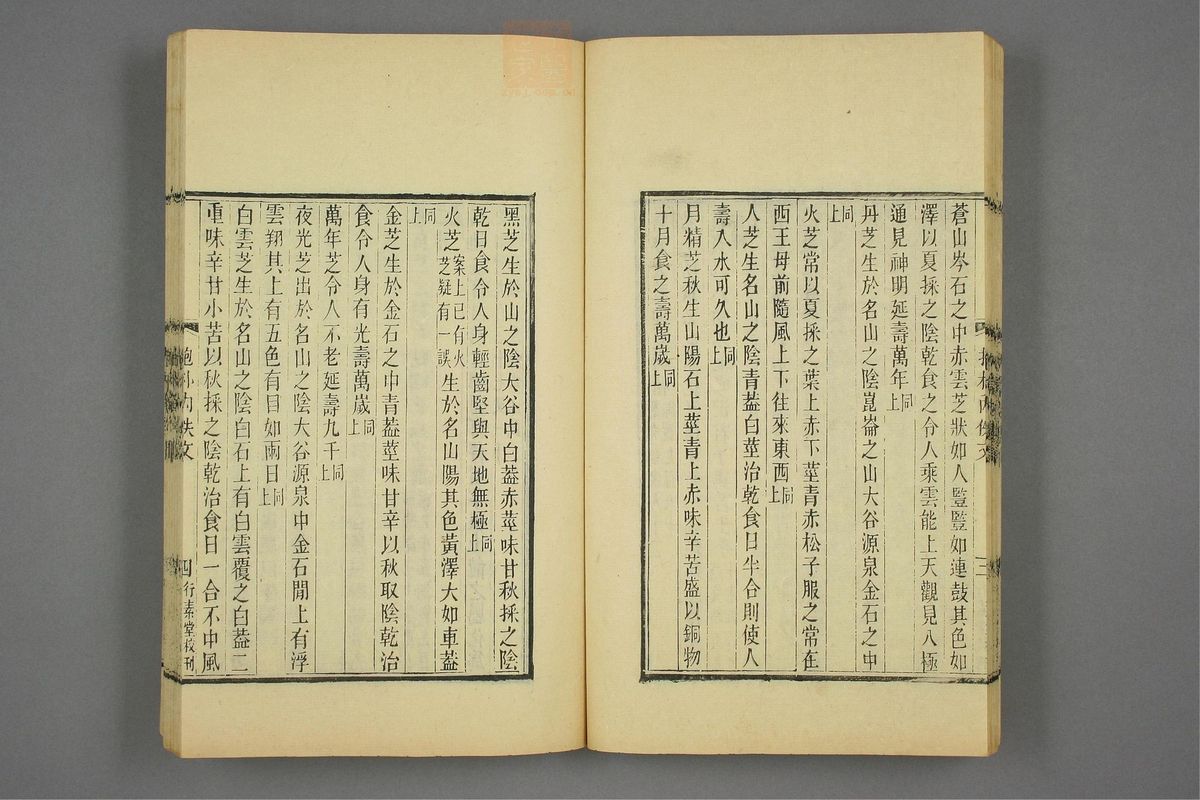 蒼山岑石之中赤雲芝狀如人豎豎如連鼓其色如
澤以夏採之陰乾食之令人乘雲能上天觀見八極
通見神明延壽萬年同上
丹芝生於名山之陰崑崙之山大谷源泉金石之中
同上
火芝常以夏採之葉上赤下莖青赤松子服之常在
西王母前隨風上下往來東西同上
人芝生名山之陰青蓋白莖治乾食日半合則使人
壽入水可久也同上
月精芝秋生山陽石上莖青上赤味辛苦盛以銅物
十月食之壽萬歲同上
三
黑芝生於山之陰大谷中白蓋赤莖味甘秋採之陰
乾日食令人身輕齒堅與天地無極同上
火芝案上已有火芝疑有一誤生於名山陽其色黃澤大如車蓋
同上
金芝生於金石之中青蓋莖味甘辛以秋取陰乾治
食令人身有光壽萬歲同上
萬年芝令人不老延壽九千同上
夜光芝出於名山之陰大谷源泉中金石閒上有浮
雲翔其上有五色有目如兩日同上
白雲芝生於名山之陰白石上有白雲覆之白蓋二
重味辛甘小苦以秋採之陰乾治食日一合不中風
抱朴內佚文 四 行素堂校刊